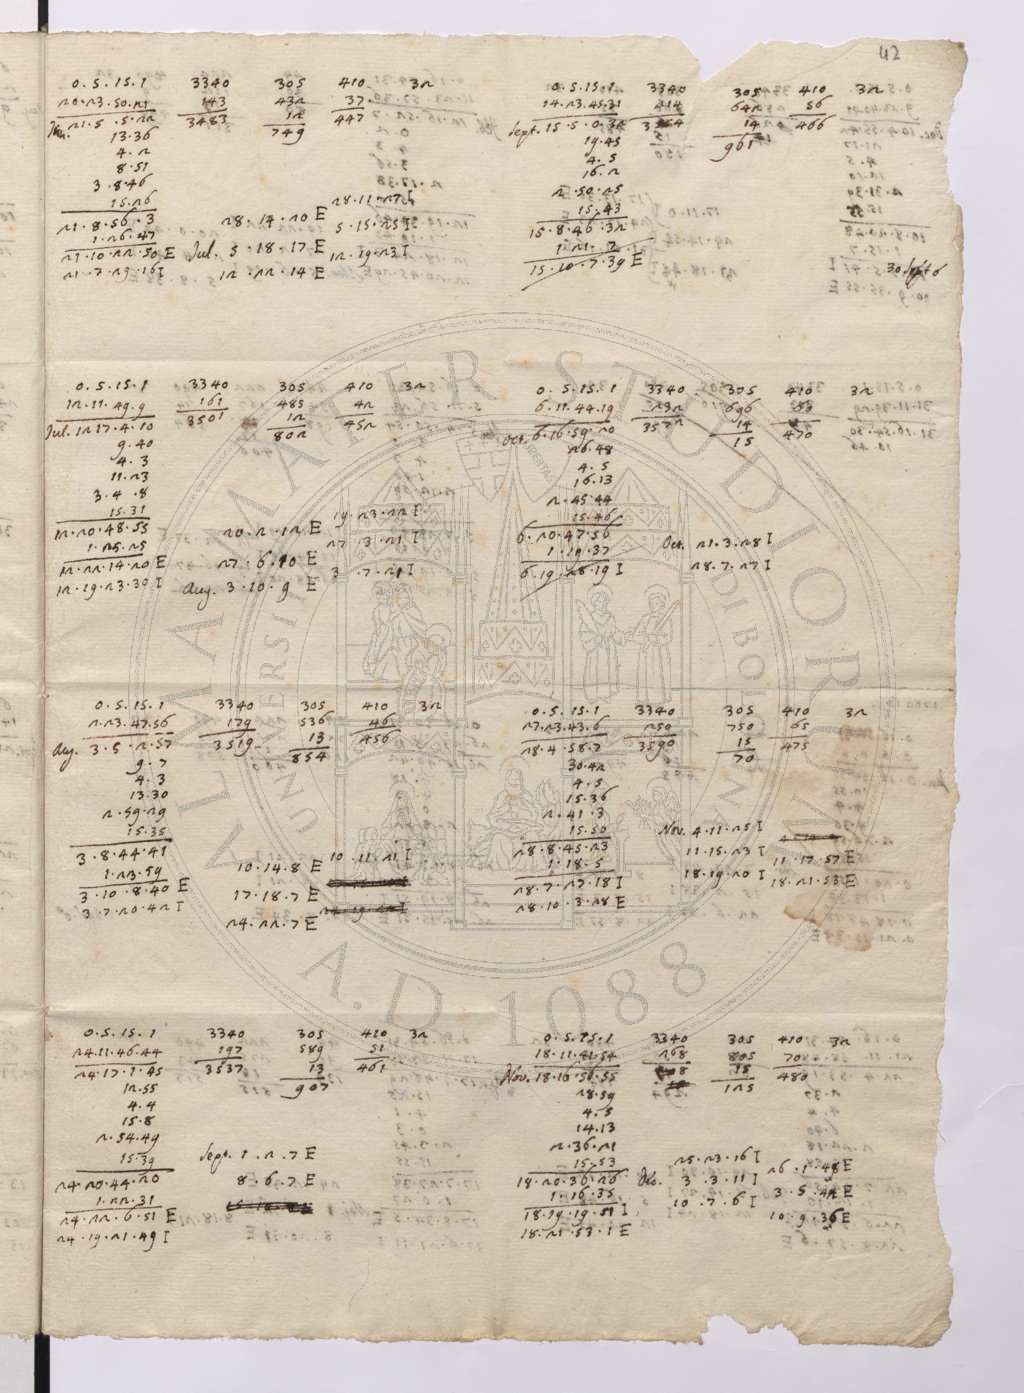 42
0.5.15.1 3340 305 410 32
20.23.50.21 143 432 37
Jun. 21.5.5.22 3483 12 447
13.36 749
4.2
8.51
3.8.46
15.26 28.11.27 I
21.8.56.3 28.14.20 E 5.15.25 I
1.26.47
21.10.22.50 E Jul. 5.18.17 E 12.19.23 I
21.7.29.16 I 12.22.14 E
0.5.15.1 3340 305 410 32
14.23.45.31 642 56
Sept. 15.5.0.32 14 466
19.45 961
4.5
16.2
2.50.25
15.43
15.8.46.32
1.21.7
15.10.7.39 E
30 Sept 6
0.5.15.1 3340 305 410 32
12.11.49.9 161 485 42
Jul. 12.17.4.10 3501 12 452
9.40 802
4.3
11.23
3.4.8
15.31 19.23.22 I
12.20.48.55 20.2.12 E 27.3.21 I
1.25.25
12.22.14.20 E 27.6.10 E 3.7.21 I
12.19.23.30 I Aug. 3.10.9 E
0.5.15.1 3340 305 410 32
6.11.44.19 232 696
Oct. 6.16.59.20 3572 14 470
26.48 15
4.5
16.13
2.45.44
15.46
6.20.47.56 Oct. 21.3.28 I
1.19.37 28.7.27 I
6.19.28.19 I
0.5.15.1 3340 305 410 32
2.23.47.56 179 536 46
Aug. 3.5.2.57 3519 13 456
9.7 854
4.3
13.30
2.59.29
15.35
3.8.44.41 10.14.8 E 10.11.21 I
1.23.59
3.10.8.40 E 17.18.7 E
3.7.20.42 I 24.22.7 E
0.5.15.1 3340 305 410 32
27.23.43.6 250 750 65
28.4.58.7 3590 15 475
30.42 70
4.5
15.36
2.41.3
15.50 Nov. 4.11.25 I
28.8.45.23 11.15.23 I 11.17.57 E
1.18.5 18.19.20 I 18.21.53 E
28.7.27.18 I
28.10.3.28 E
0.5.15.1 3340 305 410 32
24.11.46.44 197 589 51
24.17.1.45 3537 13 461
12.55 907
4.4
15.8
2.54.49
15.39 Sept. 1.2.7 E
24.20.44.20 8.6.7 E
1.22.31
24.22.6.51 E
24.19.21.49 I
0.5.15.1 3340 305 410 32
18.11.41.54 268 805 70
Nov. 18.16.56.55 15 480
28.59 125
4.5
14.13
2.36.21
15.53 25.23.16 I 26.1.48 E
18.20.36.26 Dec. 3.3.11 I 3.5.42 E
1.16.35 10.7.6 I 10.9.36 E
18.19.19.51 I
18.21.53.1 E
ALMA MATER STUDIORUM
UNIVERSITÀ DI BOLOGNA
A.D. 1088